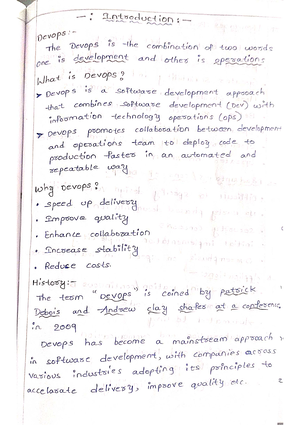 —: Introduction :—
Devops:-
The Devops is the combination of two words
one is development and other is operations
What is Devops?
➤ Devops is a software development approach
that combines software development (Dev) with
information technology operations (ops)
➤ Devops promotes collaboration between development
and operations team to deploy code to
production faster in an automated and
repeatable way
Why Devops?
• Speed up delivery
• Improve quality
• Enhance collaboration
• Increase stability
• Reduce costs.
History:-
The term "Devops" is coined by patrick
Debois and Andrew clay shafer at a conference
in 2009
Devops has become a mainstream approach
in software development, with companies across
various industries adopting its principles to
accelarate delivery, improve quality etc.